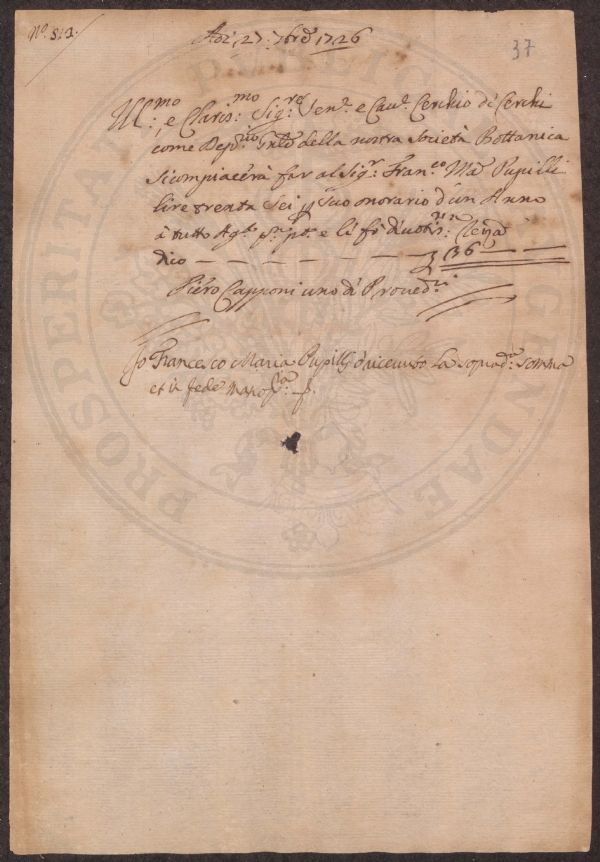 N.° 51.
37
Adi, 27: 7bre 1726
Ill.mo, e Claris:mo Sig.re Sen.e e Caul. Cerchio di Cerchi
come Dep.rio della nostra Società Bottanica
Si compiacerà far al Sig.r Fran.co Ma Pupilli
lire trenta Sei p suo onorario d'un Anno
à tutto Ag.to e li fò
dico — — — — — — £ 36 — —
Piero Capponi uno di Proued.ri
Io Francesco Maria Pupilli ò riceuuto la soprad.a somma
et in fede mano
PROSPERITATI PUBLICAE AUGENDAE